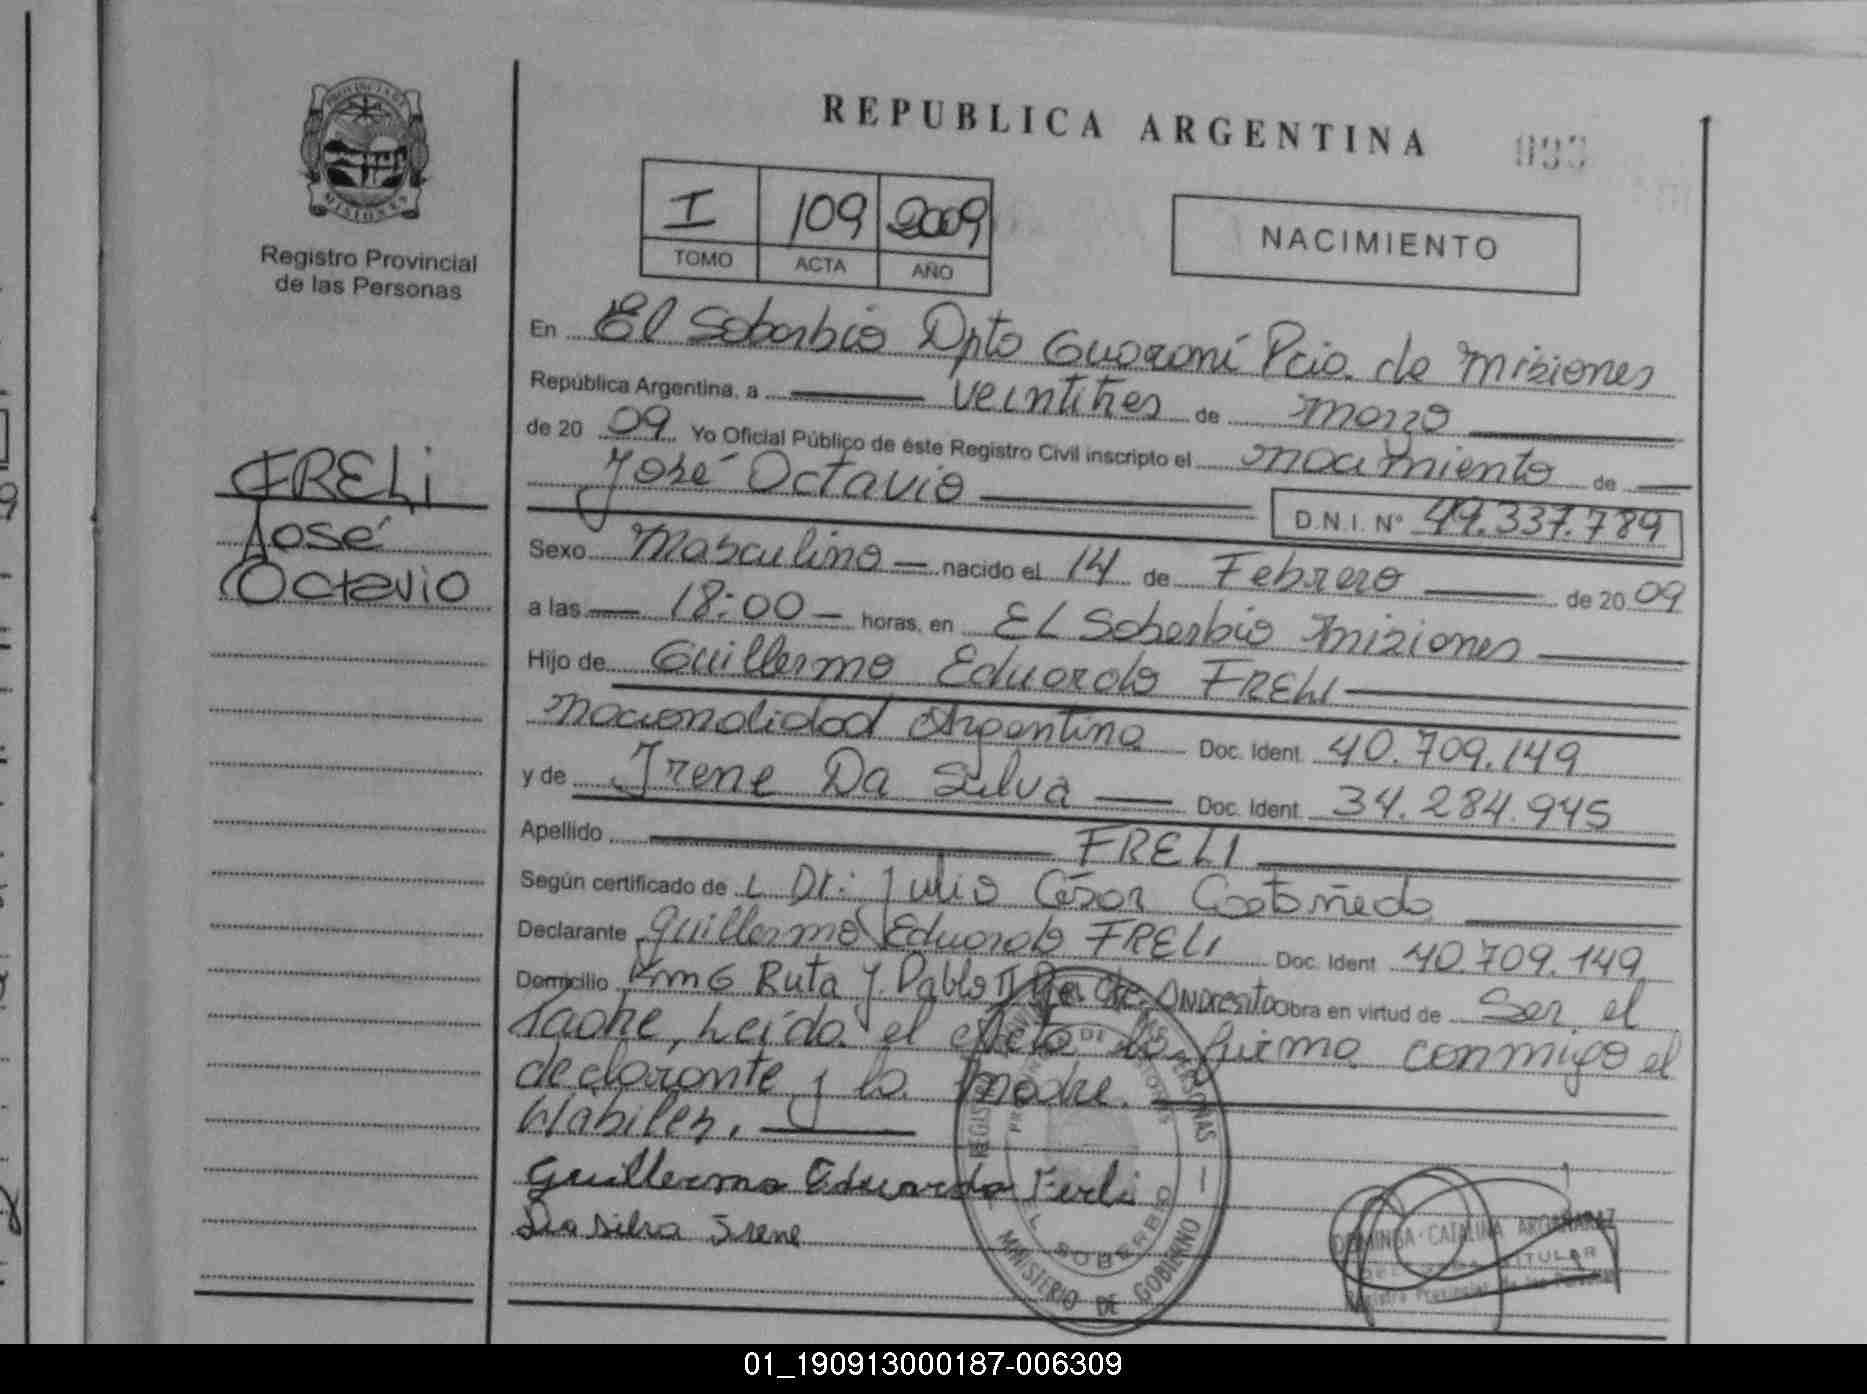 REPUBLICA ARGENTINA
PROVINCIA DE
MISIONES
Registro Provincial
de las Personas
I 109 2009
TOMO ACTA AÑO
NACIMIENTO
En El Soberbio Dpto Guaraní Pcia. de Misiones
República Argentina, a veintitres de marzo
de 20 09 Yo Oficial Público de éste Registro Civil inscripto el nacimiento de
José Octavio
D.N.I. N° 49.337.789
FRELi
José
Octavio
Sexo Masculino nacido el 14 de Febrero de 20 09
a las 18:00 horas, en EL Soberbio Misiones
Hijo de Guillermo Eduardo FRELI
nacionalidad Argentina Doc. Ident. 40.709.149
y de Irene Da Silva Doc. Ident. 34.284.945
Apellido FRELI
Según certificado de L Dr: Julio César Castañeda
Declarante Guillermo Eduardo FRELI Doc. Ident 40.709.149
Domicilio Km 6 Ruta J. Pablo II Andresito Obra en virtud de Ser el
Padre, Leída el Acta la firma conmigo el
declarante y la Madre.
Guillermo Eduardo Ferli
Da Silva Irene
EL SOBERBIO
MINISTERIO DE GOBIERNO
DOMINGA CATALINA ARGAÑARAZ
TITULAR
01_190913000187-006309